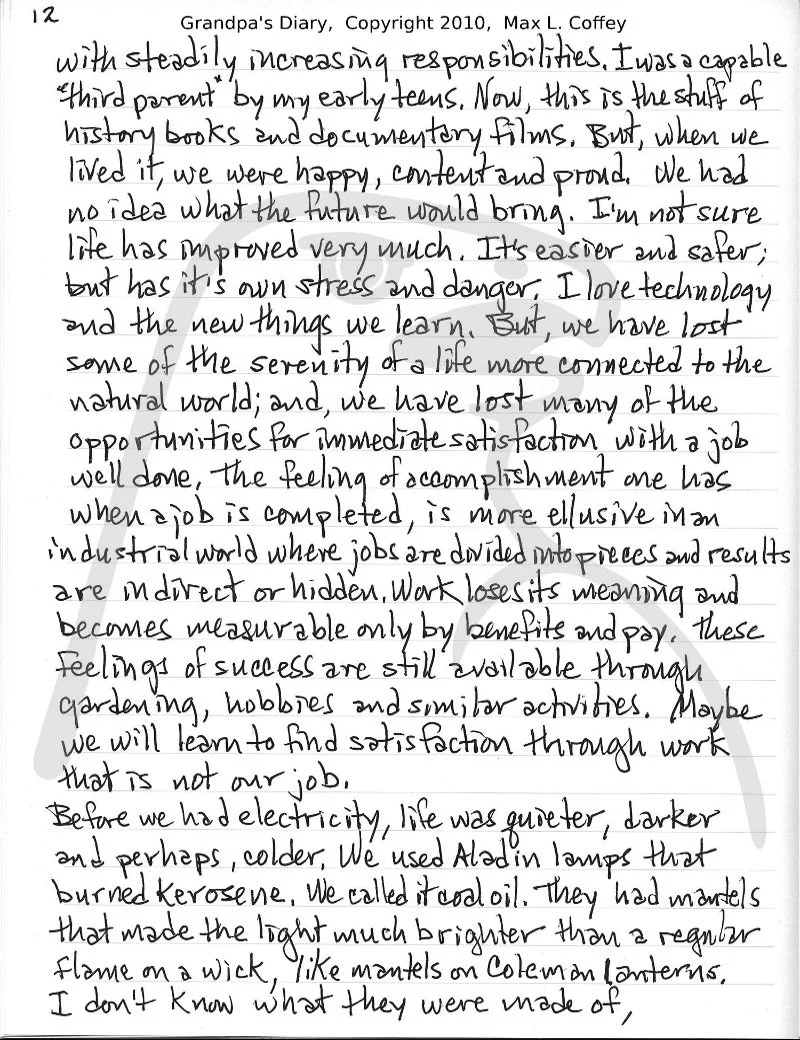 12
Grandpa's Diary, Copyright 2010, Max L. Coffey
with steadily increasing responsibilities. I was a capable
"third parent" by my early teens. Now, this is the stuff of
history books and documentary films. But, when we
lived it, we were happy, content and proud. We had
no idea what the future would bring. I'm not sure
life has improved very much. It's easier and safer;
but has it's own stress and danger. I love technology
and the new things we learn. But, we have lost
some of the serenity of a life more connected to the
natural world; and, we have lost many of the
opportunities for immediate satisfaction with a job
well done. The feeling of accomplishment one has
when a job is completed, is more ellusive in an
industrial world where jobs are divided into pieces and results
are indirect or hidden. Work loses its meaning and
becomes measurable only by benefits and pay. These
feelings of success are still available through
gardening, hobbies and similar activities. Maybe
we will learn to find satisfaction through work
that is not our job.
Before we had electricity, life was quieter, darker
and perhaps, colder. We used Aladin lamps that
burned kerosene. We called it coal oil. They had mantels
that made the light much brighter than a regular
flame on a wick, like mantels on Coleman lanterns.
I don't know what they were made of,